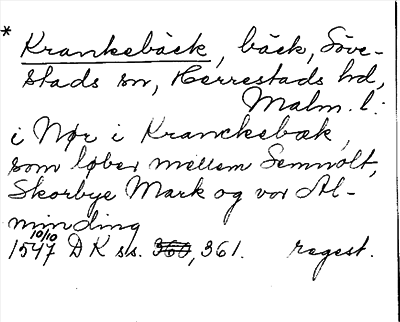 * Krankebäck, bäck, Söve-
stads sn, Herrestads hd,
Malm. l:
i Nør i Kranckebæk,
som løber mellem Semholt,
Skorbye Mark og vor Al-
minding
10/10
1547 DK ss. 360, 361. regest.